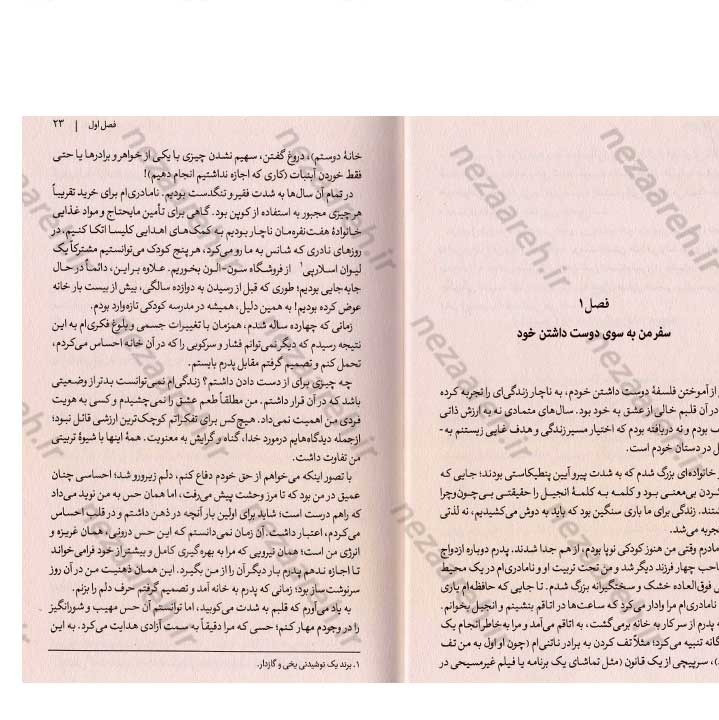 فصل ۱
سفر من به سوی دوست داشتن خود
از آموختن فلسفهٔ دوست داشتن خودم، به ناچار زندگی‌ای را تجربه کرده
در آن قلبم خالی از عشق به خود بود. سال‌های متمادی نه به ارزش ذاتی
بودم و نه دریافته بودم که اختیار مسیر زندگی و هدف غایی زیستنم به-
در دستان خودم است.
خانواده‌ای بزرگ شدم که به شدت پیرو آیین پنطیکاستی بودند؛ جایی که
کردن بی‌معنی بود و کلمه به کلمهٔ انجیل را حقیقتی بی‌چون‌وچرا
زندگی برای ما باری سنگین بود که باید به دوش می‌کشیدیم، نه لذتی
تجربه می‌شد.
مادرم وقتی من هنوز کودکی نوپا بودم، از هم جدا شدند. پدرم دوباره ازدواج
صاحب چهار فرزند دیگر شد و من تحت تربیت او و نامادری‌ام در یک محیط
فوق‌العاده خشک و سختگیرانه بزرگ شدم. تا جایی که حافظه‌ام یاری
نامادری‌ام مرا وادار می‌کرد که ساعت‌ها در اتاقم بنشینم و انجیل بخوانم.
پدرم از سر کار به خانه برمی‌گشت، به اتاقم می‌آمد و مرا به خاطر انجام یک
تنبیه می‌کرد؛ مثلاً تف کردن به برادر ناتنی‌ام (چون او اول به من تف
سرپیچی از یک قانون (مثل تماشای یک برنامه یا فیلم غیرمسیحی در
فصل اول | ۲۳
خانهٔ دوستم)، دروغ گفتن، سهیم نشدن چیزی با یکی از خواهر و برادرها یا حتی
فقط خوردن آبنبات (کاری که اجازه نداشتیم انجام دهیم)!
در تمام آن سال‌ها به شدت فقیر و تنگدست بودیم. نامادری‌ام برای خرید تقریباً
هر چیزی مجبور به استفاده از کوپن بود. گاهی برای تأمین مایحتاج و مواد غذایی
خانوادهٔ هفت‌نفره‌مان ناچار بودیم به کمک‌های اهدایی کلیسا اتکا کنیم. در
روزهای نادری که شانس به ما رو می‌کرد، هر پنج کودک می‌توانستیم مشترکاً یک
لیوان اسلارپی۱ از فروشگاه سون-الون بخوریم. علاوه بر این، دائماً در حال
جابه‌جایی بودیم؛ طوری که قبل از رسیدن به دوازده سالگی، بیش از بیست بار خانه
عوض کرده بودیم! به همین دلیل، همیشه در مدرسه کودکی تازه‌وارد بودم.
زمانی که چهارده ساله شدم، همزمان با تغییرات جسمی و بلوغ فکری‌ام به این
نتیجه رسیدم که دیگر نمی‌توانم فشار و سرکوبی را که در آن خانه احساس می‌کردم،
تحمل کنم و تصمیم گرفتم مقابل پدرم بایستم.
چه چیزی برای از دست دادن داشتم؟ زندگی‌ام نمی‌توانست بدتر از وضعیتی
باشد که در آن قرار داشتم. من مطلقاً طعم عشق را نمی‌چشیدم و کسی به هویت
فردی من اهمیت نمی‌داد. هیچ‌کس برای تفکراتم کوچک‌ترین ارزشی قائل نبود؛
ازجمله دیدگاه‌هایم درمورد خدا، گناه و گرایش به معنویت. همهٔ اینها با شیوهٔ تربیتی
من تفاوت داشت.
با تصور اینکه می‌خواهم از حق خودم دفاع کنم، دلم زیرورو شد؛ احساسی چنان
عمیق در من بود که تا مرز وحشت پیش می‌رفت، اما همان حس به من نوید می‌داد
که راهم درست است؛ شاید برای اولین بار آنچه در ذهن داشتم و در قلب احساس
می‌کردم، اعتبار داشت. آن زمان نمی‌دانستم که این حس درونی، همان غریزه و
انرژی من است؛ همان نیرویی که مرا به بهره‌گیری کامل و بیشتر از خود فرامی‌خواند
تا اجازه ندهم پدرم بار دیگر آن را از من بگیرد. این همان ذهنیت من در آن روز
سرنوشت‌ساز بود؛ زمانی که پدرم به خانه آمد و تصمیم گرفتم حرف دلم را بزنم.
به یاد می‌آورم که قلبم به شدت می‌کوبید، اما توانستم آن حس مهیب و شورانگیز
را در وجودم مهار کنم؛ حسی که مرا دقیقاً به سمت آزادی هدایت می‌کرد. به این
۱. برند یک نوشیدنی یخی و گازدار.
nezaareh.ir